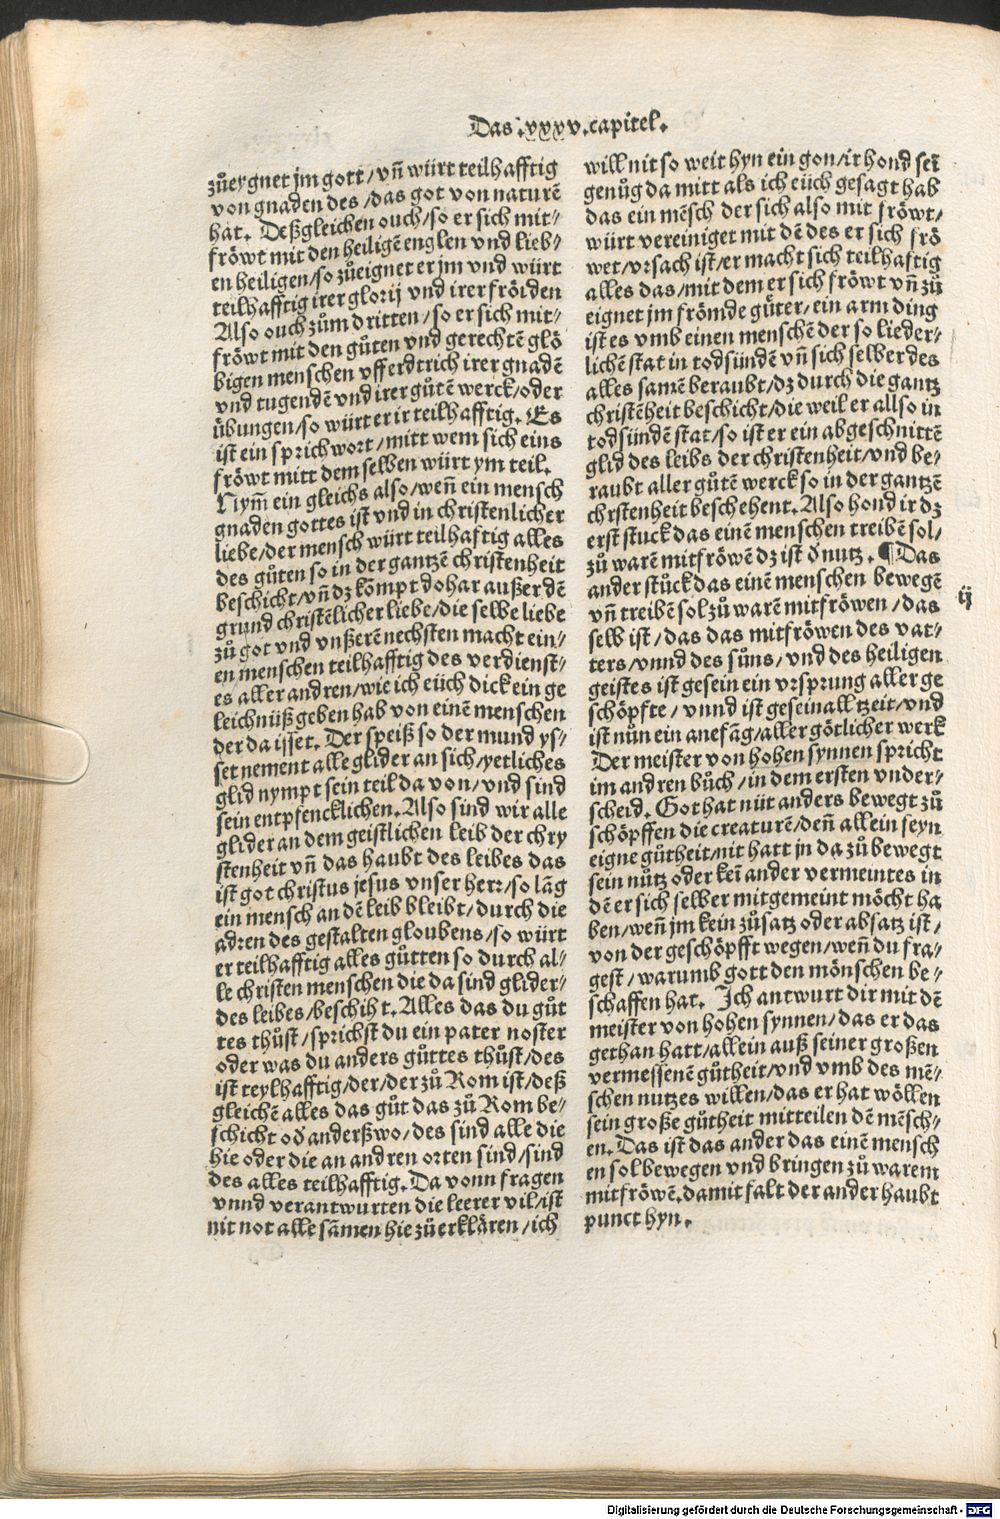 Das .xxxv. capitel.
zůeygnet jm gott / vñ würt teilhafftig
von gnaden des / das got von naturẽ
hat. Deßgleichen ouch / so er sich mit⸗
fröwt mit den heiligẽ englen vnd lieb⸗
en heiligen / so zůeignet er jm vnd würt
teilhafftig irer glorij vnd irer fröiden
Also ouch zům dritten / so er sich mit⸗
fröwt mit den gůten vnd gerechtẽ glö
bigen menschen vff erdtrich irer gnadẽ
vnd tugendẽ vnd irer gůtẽ werck / oder
übungen / so würt er ir teilhafftig. Es
ist ein sprichwort / mitt wem sich eins
fröwt mitt dem selben würt ym teil.
Nym̃ ein gleichs also / weñ ein mensch
gnaden gottes ist vnd in christenlicher
liebe / der mensch würt teilhaftig alles
des gůten so in der gantzẽ christenheit
beschicht / vñ dz kompt dohar außer dẽ
grund christẽlicher liebe / die selbe liebe
zů got vnd vnßerẽ nechsten macht ein⸗
en menschen teilhafftig des verdienst⸗
es aller andren / wie ich eüch dick ein ge
leichnüß geben hab von einẽ menschen
der da isset. Der speiß so der mund ys⸗
set nement alle glider an sich / yetliches
glid nympt sein teil da von / vnd sind
sein entpfencklichen. Also sind wir alle
glider an dem geistlichen leib der chry
stenheit vñ das haubt des leibes das
ist got christus jesus vnser herr / so lãg
ein mensch an dẽ leib bleibt / durch die
adren des gestalten gloubens / so würt
er teilhafftig alles gůtten so durch al⸗
le christen menschen die da sind glider⸗
des leibes / beschiht. Alles das du gůt
tes thůst / sprichst du ein pater noster
oder was du anders gůttes thůst / des
ist teylhafftig / der / der zů Rom ist / deß
gleichẽ alles das gůt das zů Rom be⸗
schicht oď anderßwo / des sind alle die
hie oder die an andren orten sind / sind
des alles teilhafftig. Da vonn fragen
vnnd verantwurten die leerer vil / ist
nit not alle sãmen hie zů erklären / ich
will nit so weit hyn ein gon / ir hond seï
genůg da mitt als ich eüch gesagt hab
das ein mẽsch der sich also mit fröwt /
würt vereiniget mit dẽ des er sich frö
wet / vrsach ist / er macht sich teilhaftig
alles das / mit dem er sich fröwt vñ zů
eignet jm frömde gůter / ein arm ding
ist es vmb einen menschẽ der so lieder⸗
lichẽ stat in todsündẽ vñ sich selber des
alles samẽ beraubt / dz durch die gantz
christẽheit beschicht / die weil er allso in
todsündẽ stat / so ist er ein abgeschnittẽ
glid des leibs der christenheit / vnd be⸗
raubt aller gůtẽ werck so in der gantzẽ
chrstenheit beschehent. Also hond ir dz
erst stuck das einẽ menschen treibẽ sol /
zů warẽ mitfröwẽ dz ist ď nutz. ¶ Das
ander stück das einẽ menschen bewegẽ
vñ treibẽ sol zů warẽ mitfröwen / das
selb ist / das das mitfröwen des vat⸗
ters / vnnd des sůns / vnd des heiligen
geistes ist gesein ein vrsprung aller ge
schöpfte / vnnd ist gesein all tzeit / vnd
ist nůn ein anefãg / aller götlicher werk
Der meister von hohen synnen spricht
im andren bůch / in dem ersten vnder⸗
scheid. Got hat nüt anders bewegt zů
schöpffen die creaturẽ / deñ allein seyn
eigne gůtheit / nit hatt jn da zů bewegt
sein nutz oder keï ander vermeintes in
dẽ er sich selber mitgemeint möcht ha
ben / weñ jm kein zůsatz oder absatz ist /
von der geschöpfft wegen / weñ du fra⸗
gest / warumb gott den mönschen be⸗
schaffen hat. Ich antwurt dir mit dẽ
meister von hohen synnen / das er das
gethan hatt / allein auß seiner großen
vermessenẽ gůtheit / vnd vmb des mẽ⸗
schen nutzes willen / das er hat wöllen
sein große gůtheit mitteilen dẽ mẽsch⸗
en. Das ist das ander das einẽ mensch
en sol bewegen vnd bringen zů warem
mitfröwẽ. damit falt der ander haubt
punct hyn.
ij
Digitalisierung gefördert durch die Deutsche Forschungsgemeinschaft - DFG